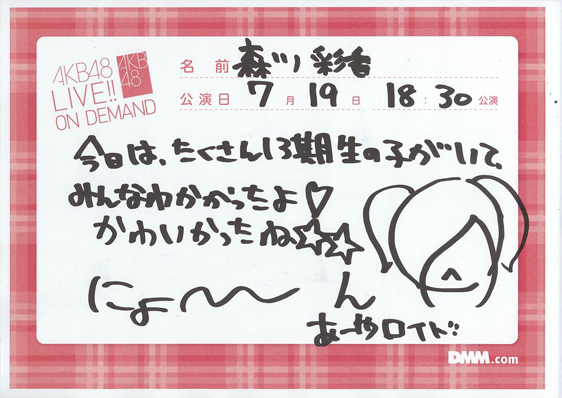 AKB48
LIVE!!
ON DEMAND
AKB
48
名前 森川彩香
公演日 7月19日 18:30公演
今日は、たくさん13期生の子がいて、
みんなわかかったよ♡
かわいかったね☆☆
にょ〜〜ん
あーやロイド!!
DMM.com